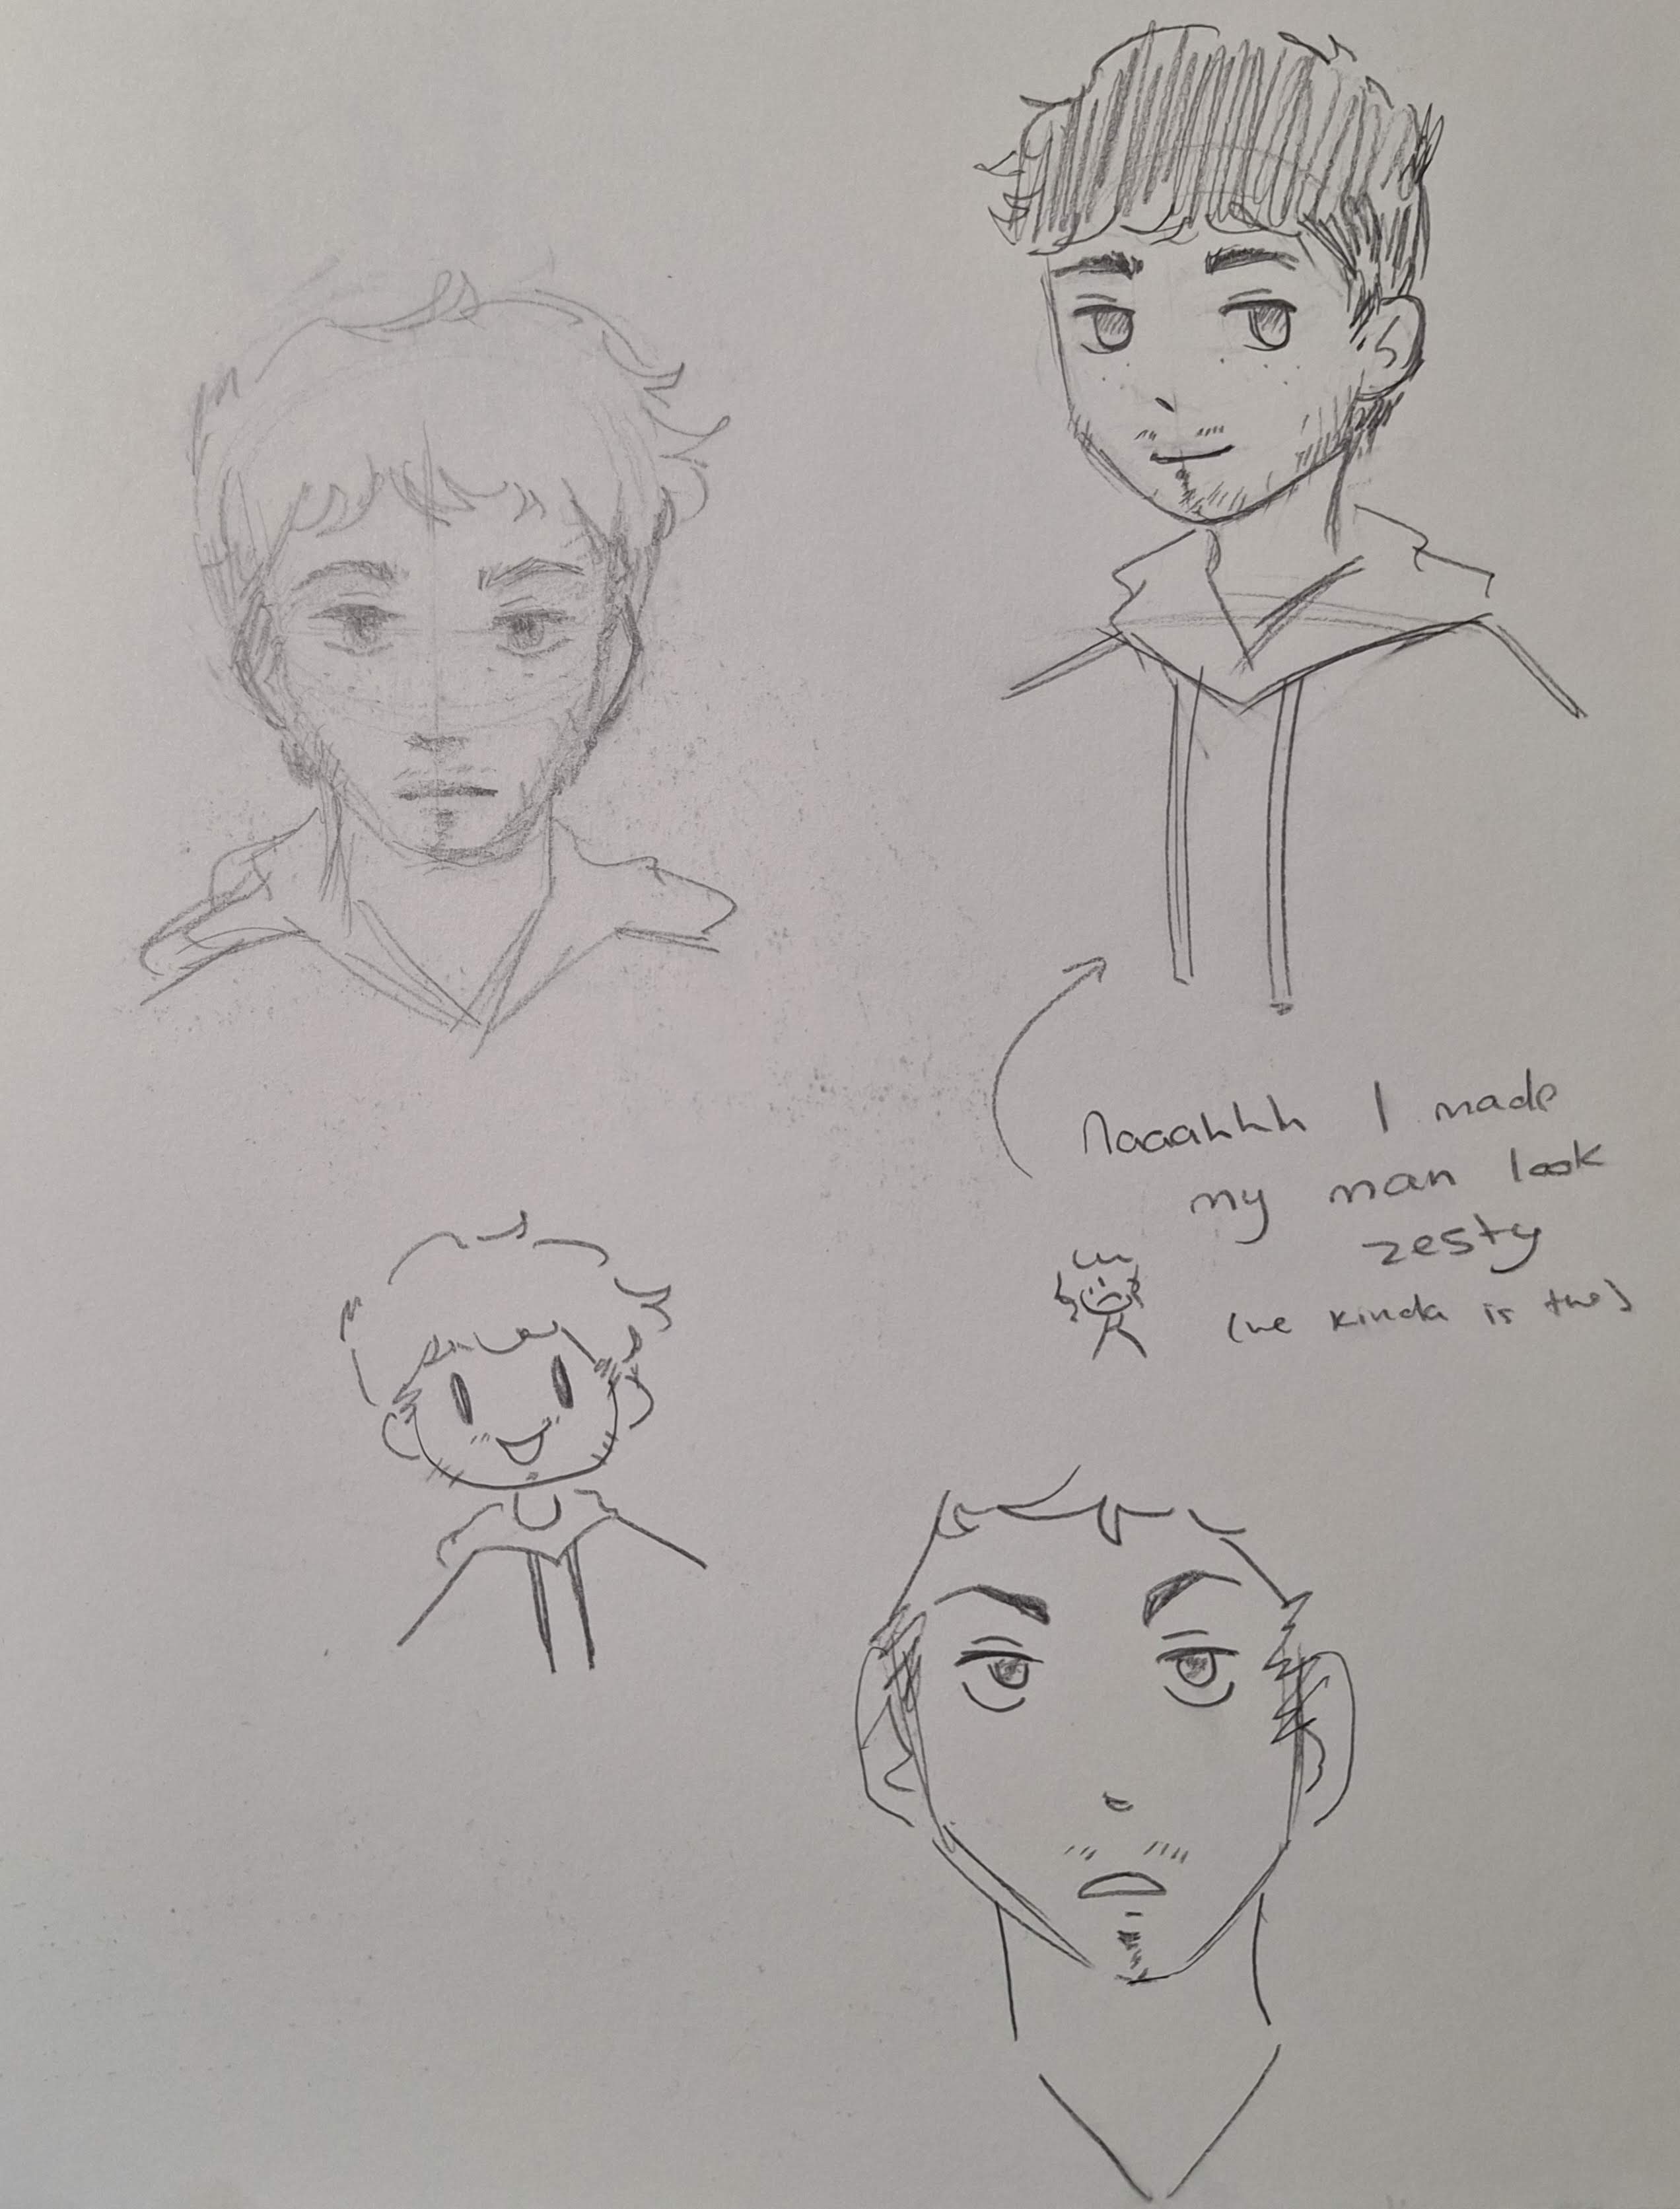 naaahhh I made
my man look
zesty
(he kinda is tho)